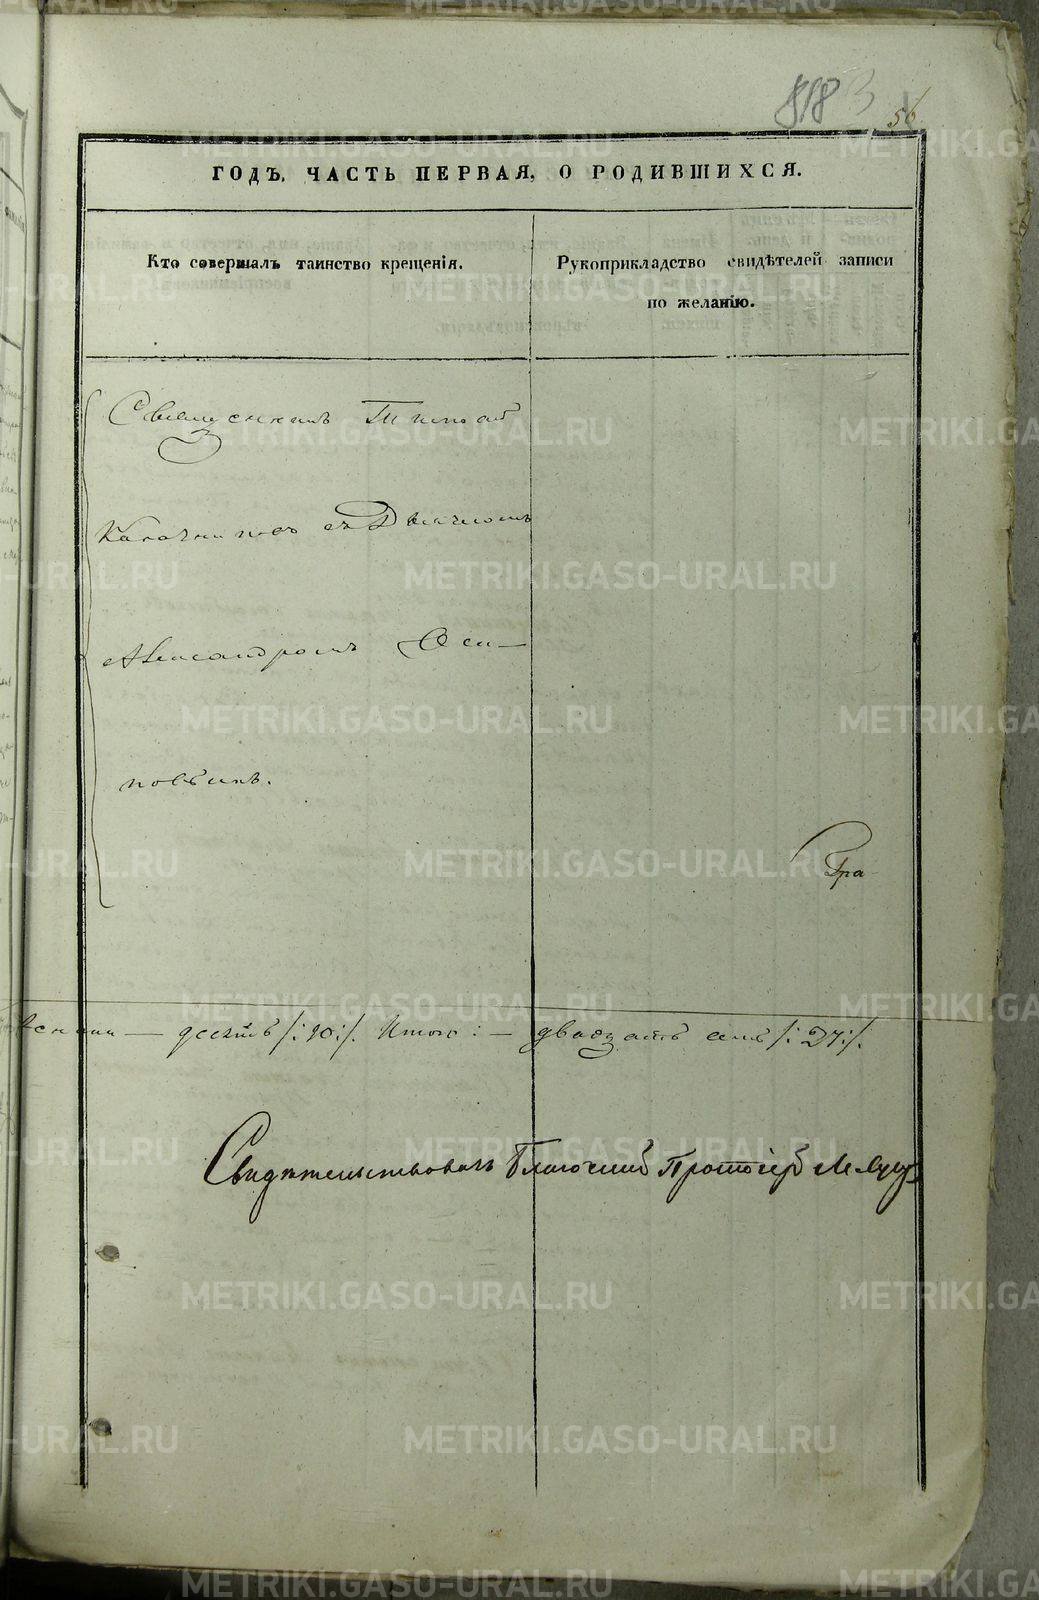 818 3
56
ГОДЪ, ЧАСТЬ ПЕРВАЯ, О РОДИВШИХСЯ.
Кто совершалъ таинство крещенія.
Рукоприкладство свидѣтелей записи
по желанію.
Священникъ
съ Дьячкомъ
Александромъ Оси-
повымъ.
Гра
десять /:10:/. Итого: — двадцать семь /:27:/.
Свидѣтельствовалъ Благочинный Протоіерей
METRIKI.GASO-URAL.RU